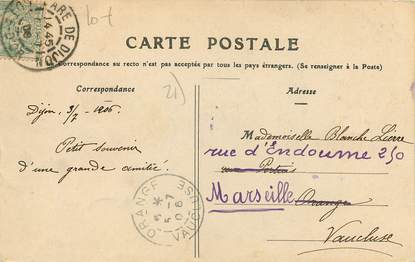 lot
GARE DE DIJON
14 45
CARTE POSTALE
La Correspondance au recto n'est pas acceptée par tous les pays étrangers. (Se renseigner à la Poste)
21)
Correspondance
Dijon, 3/7 - 1906.
Petit souvenir
d'une grande amitié.
Adresse
Mademoiselle Blanche
rue d'Endoume 250
Marseille Orange
Vaucluse
ORANGE
5 -7
06
VAUCLUSE